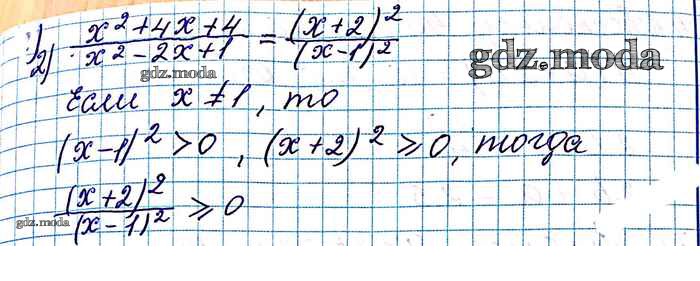 2) (x² + 4x + 4)/(x² - 2x + 1) = (x + 2)²/(x - 1)²
gdz.moda
gdz.moda
Если x ≠ 1, то
(x - 1)² > 0, (x + 2)² ⩾ 0, тогда
(x + 2)²/(x - 1)² ⩾ 0
gdz.moda
gdz.moda